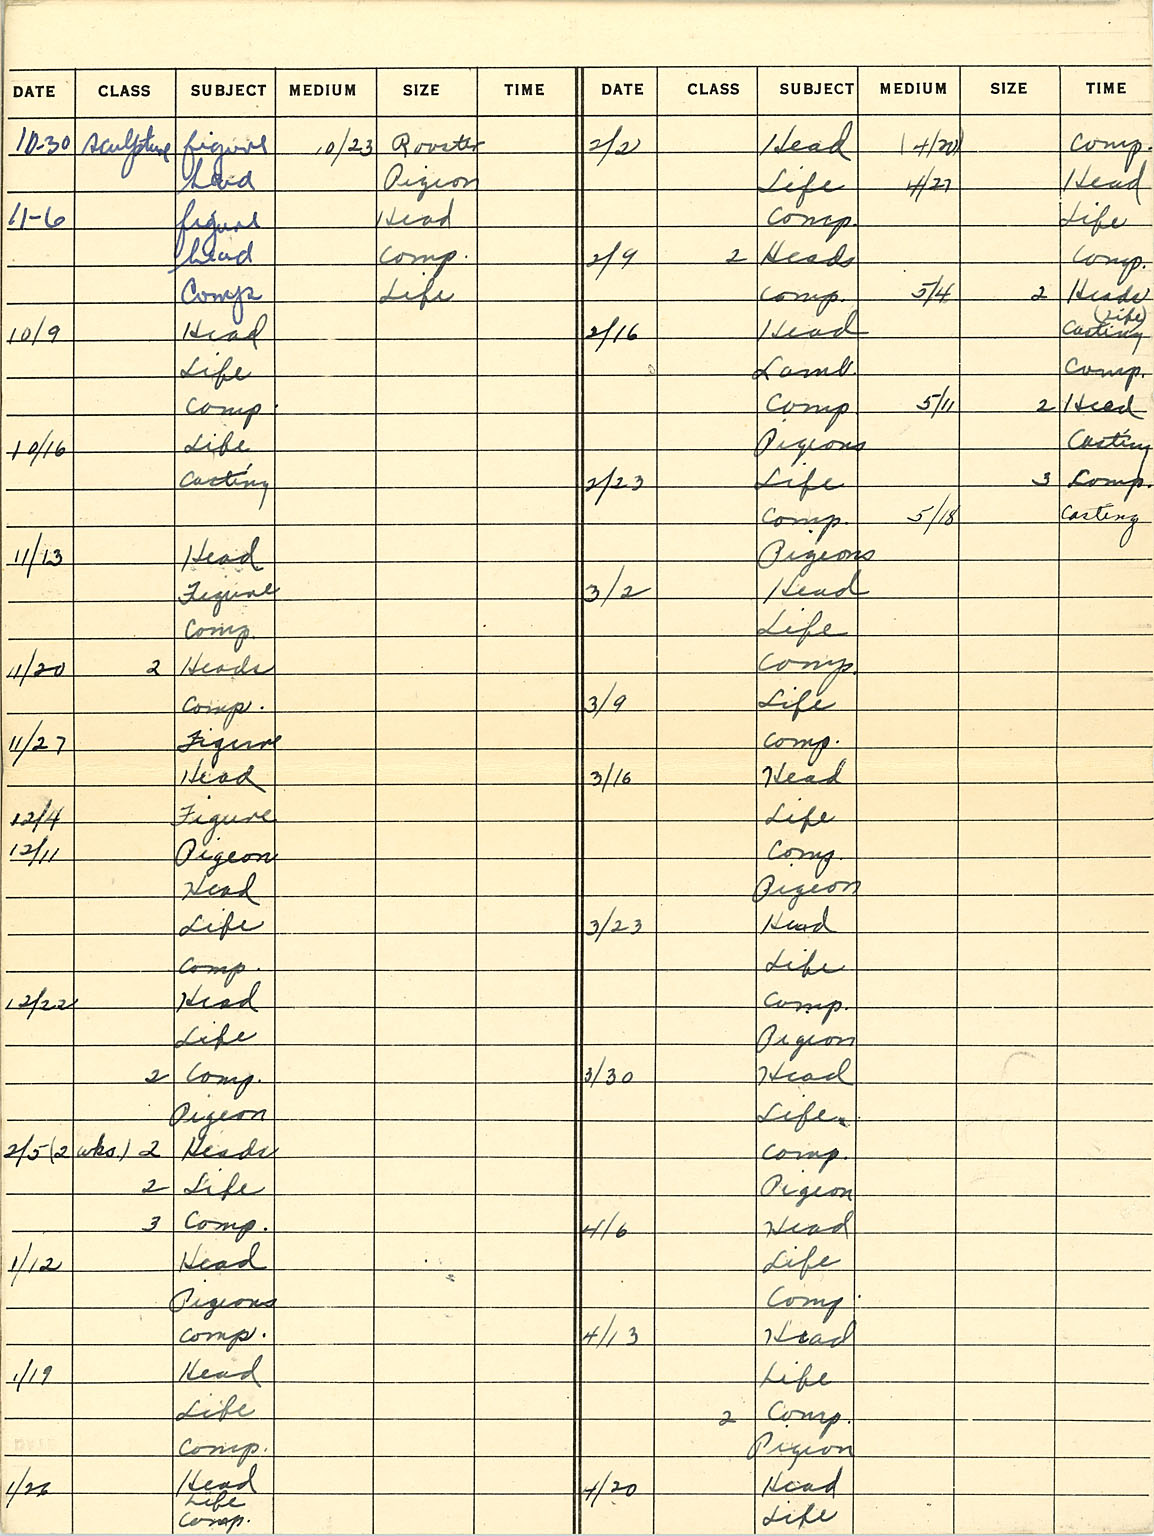 DATE CLASS SUBJECT MEDIUM SIZE TIME DATE CLASS SUBJECT MEDIUM SIZE TIME
10-30 sculpture figure 10/23 Rooster
head Pigeon
11-6 figure Head
head Comp.
Comps Life
10/9 Head
Life
Comp.
10/16 Life
Casting
11/13 Head
Figure
Comp.
11/20 2 Heads
Comp.
11/27 Figure
Head
12/4 Figure
12/11 Pigeon
Head
Life
Comp.
12/22 Head
Life
2 Comp.
Pigeon
2/5 (2 wks.) 2 Heads
2 Life
3 Comp.
1/12 Head
Pigeons
Comp.
1/19 Head
Life
Comp.
1/26 Head
Life
Comp.
2/2 Head 4/20 Comp.
Life 4/27 Head
Comp. Life
2/9 2 Heads Comp.
Comp. 5/4 2 Heads
(Life)
2/16 Head Casting
Lamb. Comp.
Comp 5/11 2 Head
Pigeons Casting
2/23 Life 3 Comp.
Comp. 5/18 Casting
Pigeons
3/2 Head
Life
Comp.
3/9 Life
Comp.
3/16 Head
Life
Comp.
Pigeon
3/23 Head
Life
Comp.
Pigeon
3/30 Head
Life
Comp.
Pigeon
4/6 Head
Life
Comp.
4/13 Head
Life
2 Comp.
Pigeon
4/20 Head
Life